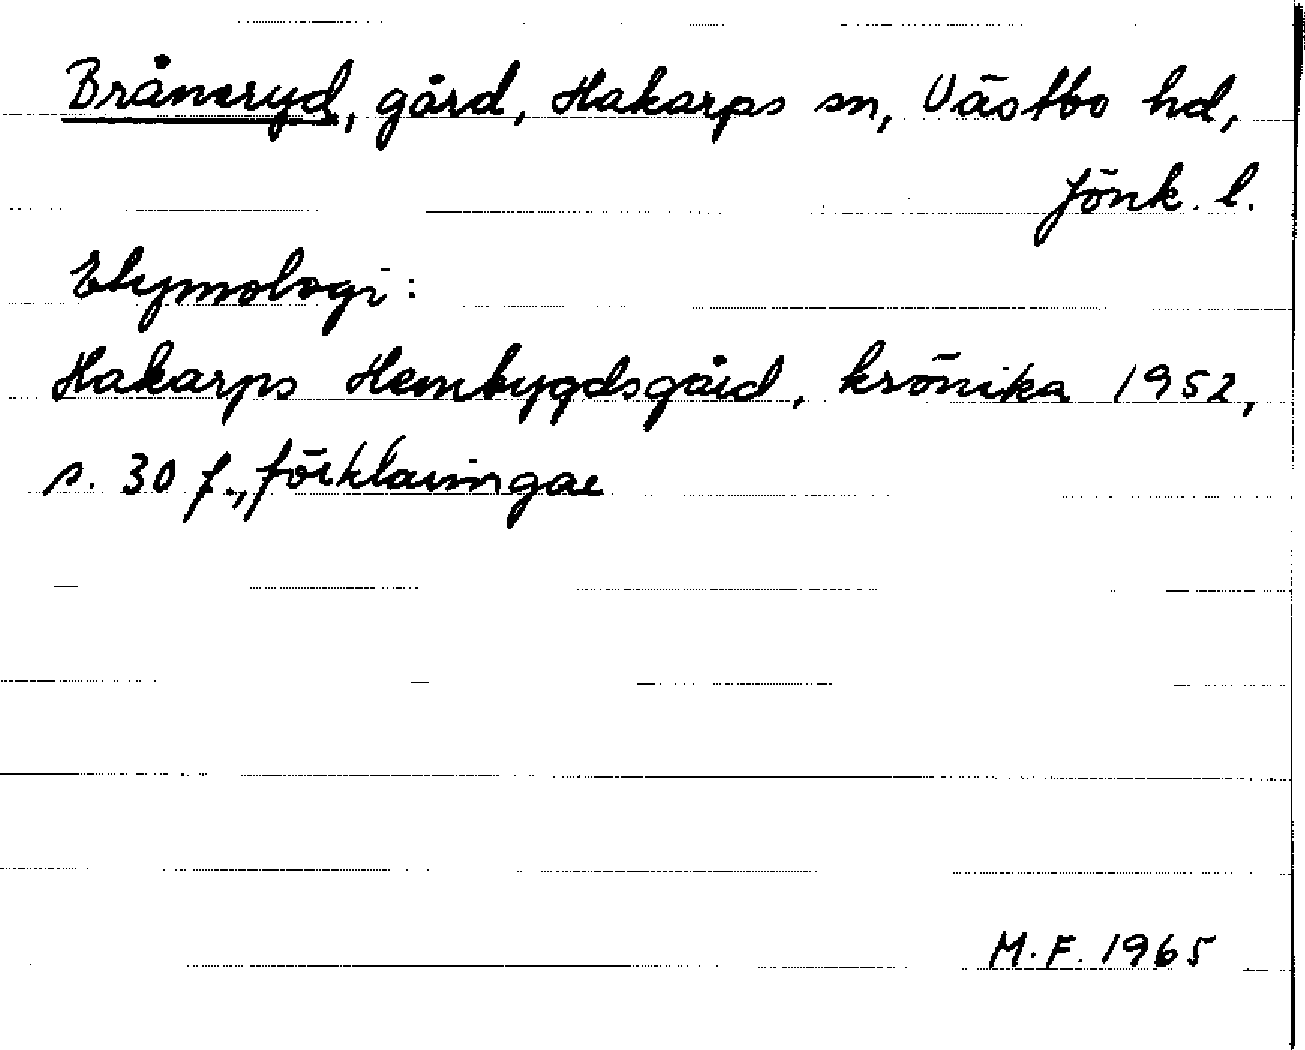 Bråneryd, gård, Hakarps sn, Västbo hd,
Jönk. l.
Etymologi:
Hakarps Hembygdsgård, krönika 1952,
s. 30 f., förklaringar
M.F. 1965